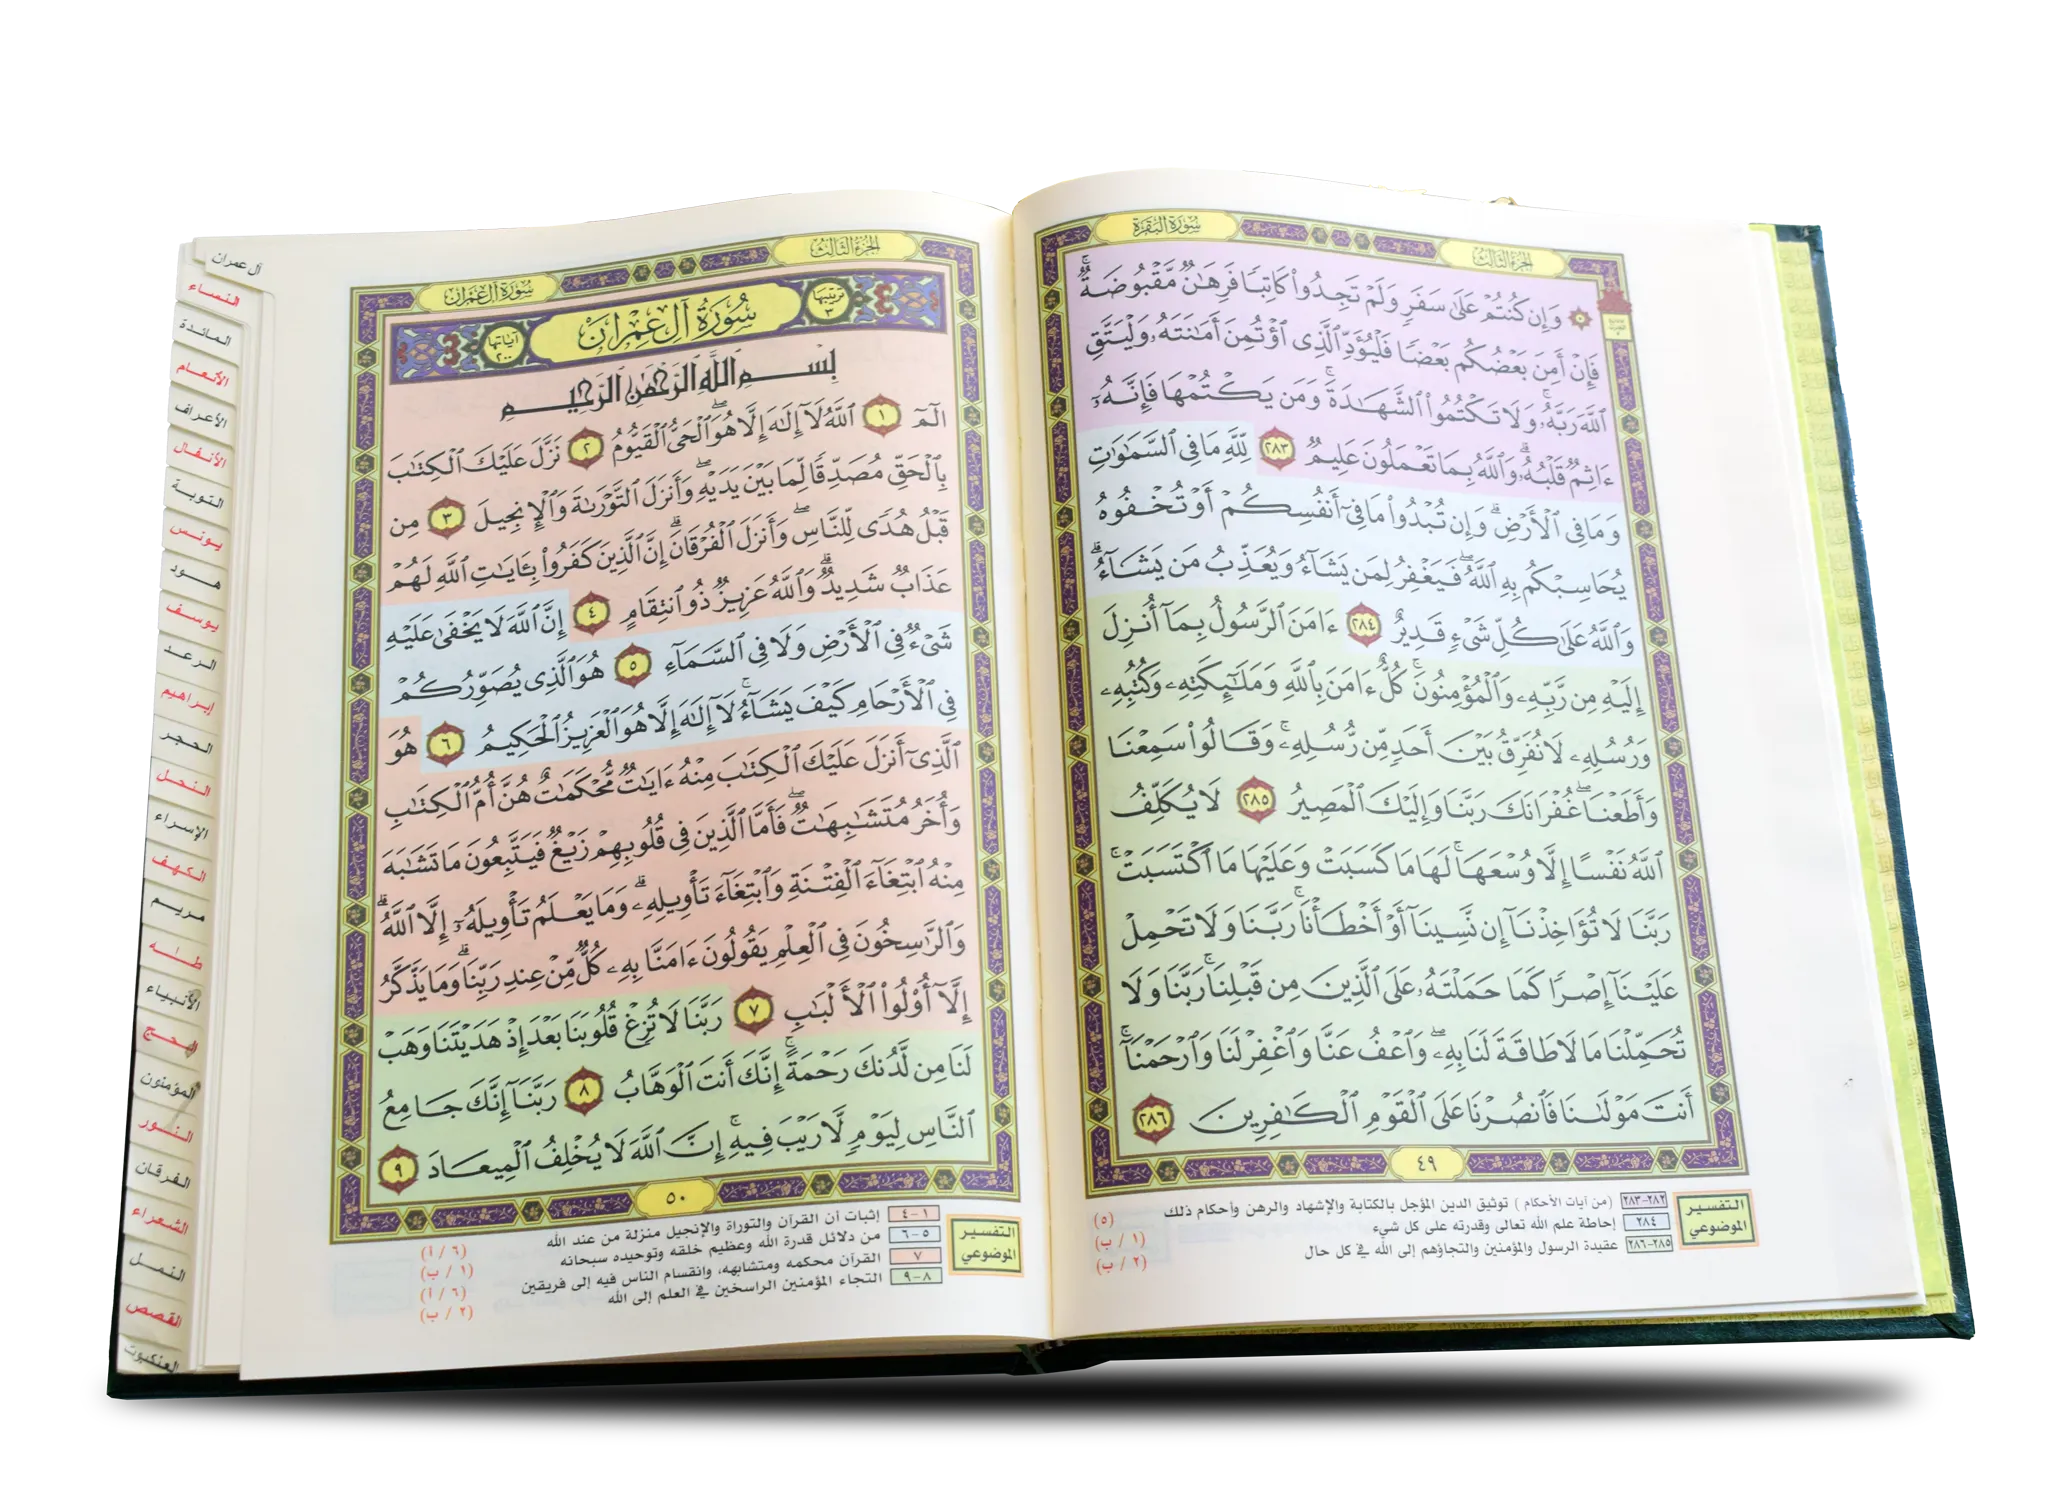 سُورَةُ البَقَرَةِ
الجُزْءُ الثَّالِثُ
۞ وَإِن كُنتُمْ عَلَىٰ سَفَرٍ وَلَمْ تَجِدُوا۟ كَاتِبًا فَرِهَـٰنٌ مَّقْبُوضَةٌ ۖ
فَإِنْ أَمِنَ بَعْضُكُم بَعْضًا فَلْيُؤَدِّ ٱلَّذِى ٱؤْتُمِنَ أَمَـٰنَتَهُۥ وَلْيَتَّقِ
ٱللَّهَ رَبَّهُۥ ۗ وَلَا تَكْتُمُوا۟ ٱلشَّهَـٰدَةَ ۚ وَمَن يَكْتُمْهَا فَإِنَّهُۥٓ
ءَاثِمٌ قَلْبُهُۥ ۗ وَٱللَّهُ بِمَا تَعْمَلُونَ عَلِيمٌ ٢٨٣ لِّلَّهِ مَا فِى ٱلسَّمَـٰوَٰتِ
وَمَا فِى ٱلْأَرْضِ ۗ وَإِن تُبْدُوا۟ مَا فِىٓ أَنفُسِكُمْ أَوْ تُخْفُوهُ
يُحَاسِبْكُم بِهِ ٱللَّهُ ۖ فَيَغْفِرُ لِمَن يَشَآءُ وَيُعَذِّبُ مَن يَشَآءُ ۗ
وَٱللَّهُ عَلَىٰ كُلِّ شَىْءٍ قَدِيرٌ ٢٨٤ ءَامَنَ ٱلرَّسُولُ بِمَآ أُنزِلَ
إِلَيْهِ مِن رَّبِّهِۦ وَٱلْمُؤْمِنُونَ ۚ كُلٌّ ءَامَنَ بِٱللَّهِ وَمَلَـٰٓئِكَتِهِۦ وَكُتُبِهِۦ
وَرُسُلِهِۦ لَا نُفَرِّقُ بَيْنَ أَحَدٍ مِّن رُّسُلِهِۦ ۚ وَقَالُوا۟ سَمِعْنَا
وَأَطَعْنَا ۖ غُفْرَانَكَ رَبَّنَا وَإِلَيْكَ ٱلْمَصِيرُ ٢٨٥ لَا يُكَلِّفُ
ٱللَّهُ نَفْسًا إِلَّا وُسْعَهَا ۚ لَهَا مَا كَسَبَتْ وَعَلَيْهَا مَا ٱكْتَسَبَتْ ۗ
رَبَّنَا لَا تُؤَاخِذْنَآ إِن نَّسِينَآ أَوْ أَخْطَأْنَا ۚ رَبَّنَا وَلَا تَحْمِلْ
عَلَيْنَآ إِصْرًا كَمَا حَمَلْتَهُۥ عَلَى ٱلَّذِينَ مِن قَبْلِنَا ۚ رَبَّنَا وَلَا
تُحَمِّلْنَا مَا لَا طَاقَةَ لَنَا بِهِۦ ۖ وَٱعْفُ عَنَّا وَٱغْفِرْ لَنَا وَٱرْحَمْنَآ ۚ
أَنتَ مَوْلَىٰنَا فَٱنصُرْنَا عَلَى ٱلْقَوْمِ ٱلْكَـٰفِرِينَ ٢٨٦
٤٩
التفسير الموضوعي
٢٨٢-٢٨٣ (من آيات الأحكام) توثيق الدين المؤجل بالكتابة والإشهاد والرهن وأحكام ذلك (٥)
٢٨٤ إحاطة علم الله تعالى وقدرته على كل شيء (١ / ب)
٢٨٥-٢٨٦ عقيدة الرسول والمؤمنين والتجاؤهم إلى الله في كل حال (٢ / ب)
الجُزْءُ الثَّالِثُ
سُورَةُ آلِ عِمْرَان
ترتيبها ٣
سُورَةُ آلِ عِمْرَان
آياتها ٢٠٠
بِسْمِ ٱللَّهِ ٱلرَّحْمَـٰنِ ٱلرَّحِيمِ
الٓمٓ ١ ٱللَّهُ لَآ إِلَـٰهَ إِلَّا هُوَ ٱلْحَىُّ ٱلْقَيُّومُ ٢ نَزَّلَ عَلَيْكَ ٱلْكِتَـٰبَ
بِٱلْحَقِّ مُصَدِّقًا لِّمَا بَيْنَ يَدَيْهِ وَأَنزَلَ ٱلتَّوْرَىٰةَ وَٱلْإِنجِيلَ ٣ مِن
قَبْلُ هُدًى لِّلنَّاسِ وَأَنزَلَ ٱلْفُرْقَانَ ۗ إِنَّ ٱلَّذِينَ كَفَرُوا۟ بِـَٔايَـٰتِ ٱللَّهِ لَهُمْ
عَذَابٌ شَدِيدٌ ۗ وَٱللَّهُ عَزِيزٌ ذُو ٱنتِقَامٍ ٤ إِنَّ ٱللَّهَ لَا يَخْفَىٰ عَلَيْهِ
شَىْءٌ فِى ٱلْأَرْضِ وَلَا فِى ٱلسَّمَآءِ ٥ هُوَ ٱلَّذِى يُصَوِّرُكُمْ
فِى ٱلْأَرْحَامِ كَيْفَ يَشَآءُ ۚ لَآ إِلَـٰهَ إِلَّا هُوَ ٱلْعَزِيزُ ٱلْحَكِيمُ ٦ هُوَ
ٱلَّذِىٓ أَنزَلَ عَلَيْكَ ٱلْكِتَـٰبَ مِنْهُ ءَايَـٰتٌ مُّحْكَمَـٰتٌ هُنَّ أُمُّ ٱلْكِتَـٰبِ
وَأُخَرُ مُتَشَـٰبِهَـٰتٌ ۖ فَأَمَّا ٱلَّذِينَ فِى قُلُوبِهِمْ زَيْغٌ فَيَتَّبِعُونَ مَا تَشَـٰبَهَ
مِنْهُ ٱبْتِغَآءَ ٱلْفِتْنَةِ وَٱبْتِغَآءَ تَأْوِيلِهِۦ ۗ وَمَا يَعْلَمُ تَأْوِيلَهُۥٓ إِلَّا ٱللَّهُ ۗ
وَٱلرَّٰسِخُونَ فِى ٱلْعِلْمِ يَقُولُونَ ءَامَنَّا بِهِۦ كُلٌّ مِّنْ عِندِ رَبِّنَا ۗ وَمَا يَذَّكَّرُ
إِلَّآ أُو۟لُوا۟ ٱلْأَلْبَـٰبِ ٧ رَبَّنَا لَا تُزِغْ قُلُوبَنَا بَعْدَ إِذْ هَدَيْتَنَا وَهَبْ
لَنَا مِن لَّدُنكَ رَحْمَةً ۚ إِنَّكَ أَنتَ ٱلْوَهَّابُ ٨ رَبَّنَآ إِنَّكَ جَامِعُ
ٱلنَّاسِ لِيَوْمٍ لَّا رَيْبَ فِيهِ ۚ إِنَّ ٱللَّهَ لَا يُخْلِفُ ٱلْمِيعَادَ ٩
٥٠
التفسير الموضوعي
١-٤ إثبات أن القرآن والتوراة والإنجيل منزلة من عند الله (٦ / أ)
٥-٦ من دلائل قدرة الله وعظيم خلقه وتوحيده سبحانه (١ / ب)
٧ القرآن محكمه ومتشابهه، وانقسام الناس فيه إلى فريقين (٦ / أ)
٨-٩ التجاء المؤمنين الراسخين في العلم إلى الله (٢ / ب)
آل عمران
النساء
المائدة
الأنعام
الأعراف
الأنفال
التوبة
يونس
هود
يوسف
الرعد
إبراهيم
الحجر
النحل
الإسراء
الكهف
مريم
طه
الأنبياء
الحج
المؤمنون
النور
الفرقان
الشعراء
النمل
القصص
العنكبوت